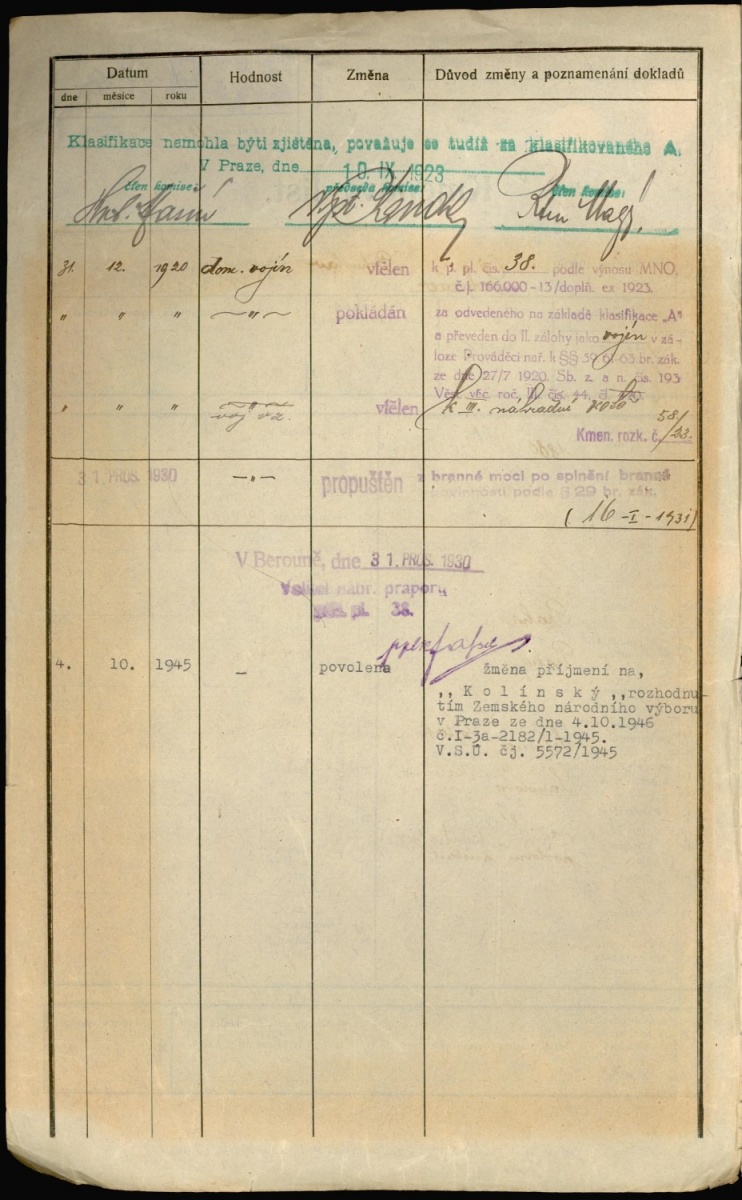 Datum Hodnost Změna Důvod změny a poznamenání dokladů
dne měsíce roku
Klasifikace nemohla býti zjištěna, považuje se tudíž za klasifikovaného A.
V Praze, dne 10. IX. 1923
člen komise: předseda komise: člen komise:
31. 12. 1920 dom. vojín vtělen k p. pl. čís. 38. podle výnosu MNO,
č.j. 166.000-13/doplň. ex 1923.
" " " —"— pokládán za odvedeného na základě klasifikace „A"
a převeden do II. zálohy jako vojín v zá-
loze Prováděcí nař. k §§ 59, 61-63 br. zák.
ze dne 27/7 1920. Sb. z. a n. čís. 193
Věst. věc. roč. III. čís. 44, čl.
" " " voj v z. vtělen k III. náhradní
Kmen. rozk. č. 58/23.
31. PROS. 1930 —"— propuštěn z branné moci po splnění branné
povinnosti podle § 29 br. zák.
(16-I-1931)
V Berouně, dne 31. PROS. 1930
Velitel náhr. praporu
pěš. pl. 38.
4. 10. 1945 — povolena změna příjmení na,
,, K o l í n s k ý ,,rozhodnu-
tím Zemského národního výboru
v Praze ze dne 4.10.1946
č.I-3a-2182/1-1945.
V.S.Ú. čj. 5572/1945